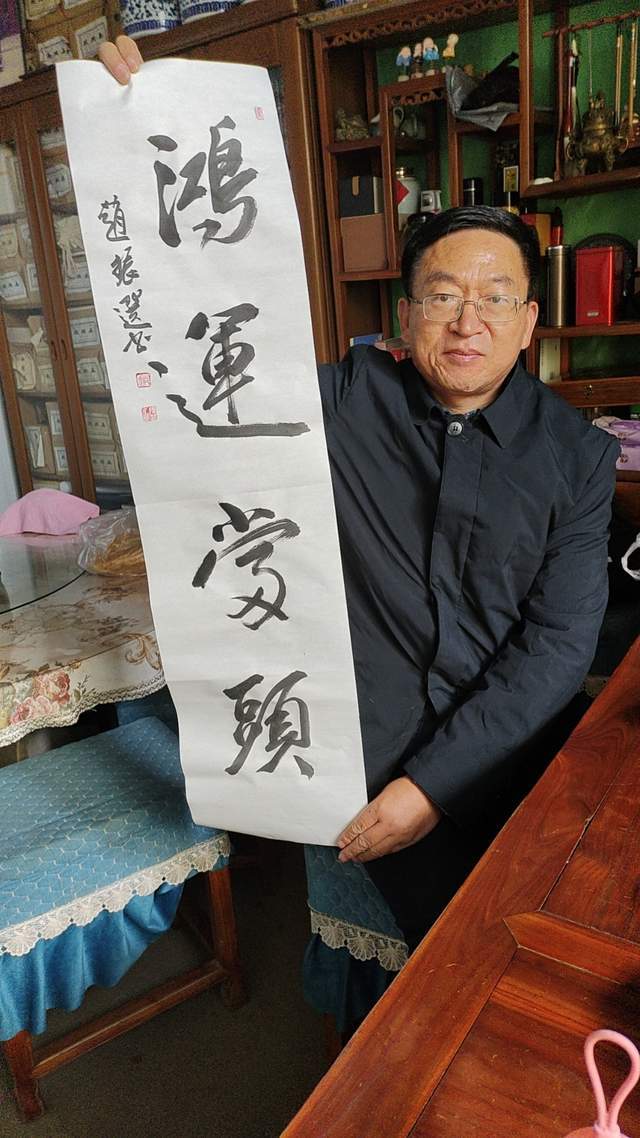 鴻運當頭
趙振選书